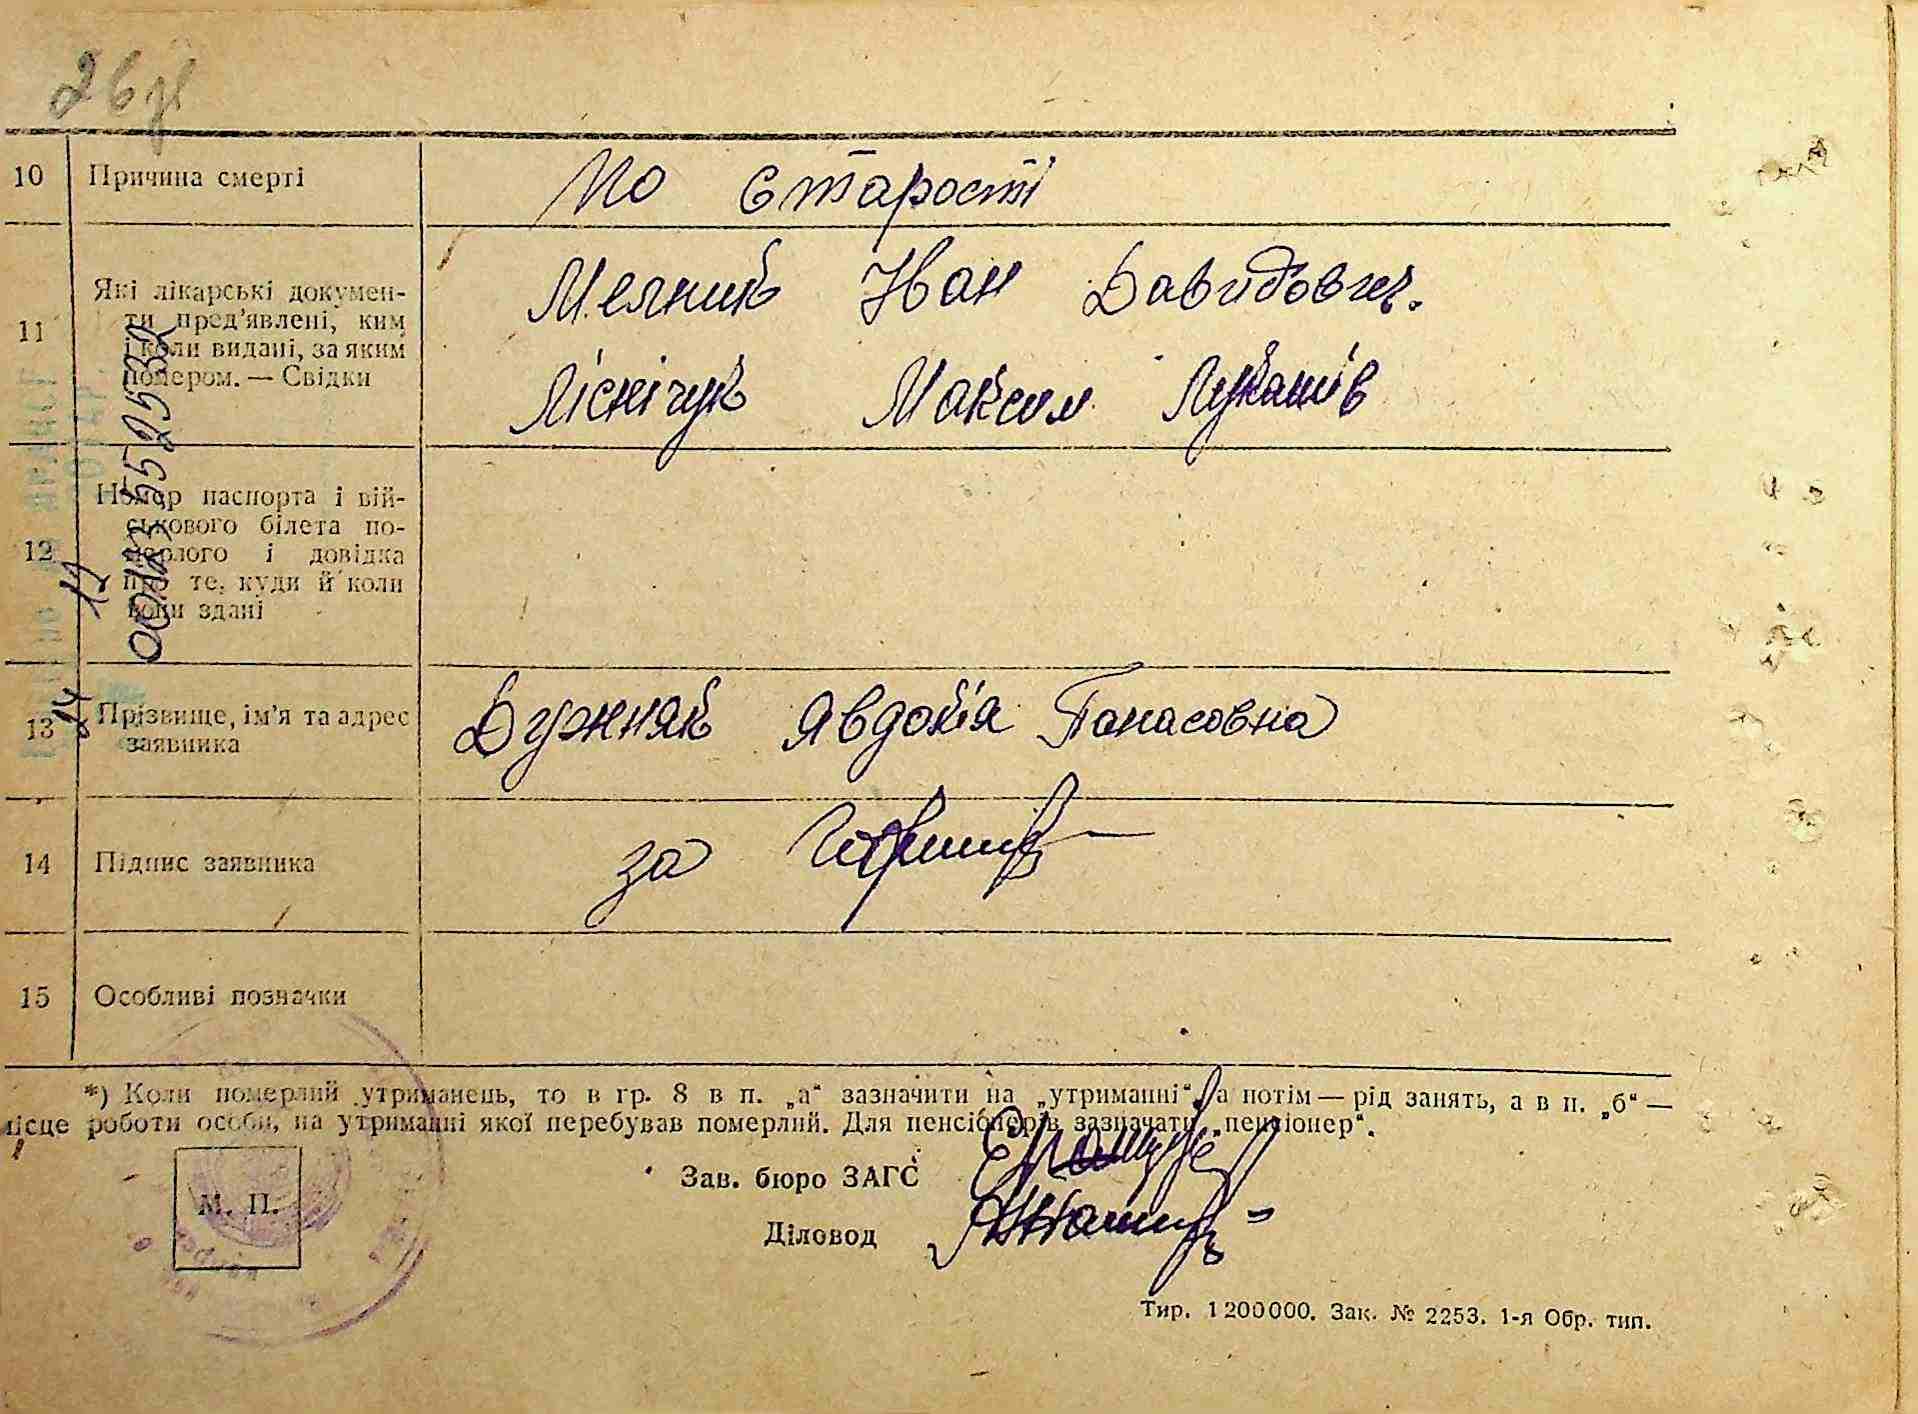 26
10 Причина смерті По старості
11 Які лікарські докумен-
ти пред'явлені, ким
і коли видані, за яким
номером. — Свідки
Мелник Іван Давидович.
Ліснічук Максим Лукашів
0011а3 5525532
12 Номер паспорта і вій-
ськового білета по-
мерлого і довідка
про те, куди й коли
вони здані
13 Прізвище, ім'я та адрес
заявника
Дужняк Явдокія Панасовна
14 Підпис заявника за
15 Особливі позначки
*) Коли померлий утриманець, то в гр. 8 в п. „а“ зазначити на „утриманні“, а потім — рід занять, а в п. „б“ —
місце роботи особи, на утриманні якої перебував померлий. Для пенсіонерів зазначати „пенсіонер“.
Зав. бюро ЗАГС
М. П.
Діловод
Тир. 1200000. Зак. № 2253. 1-я Обр. тип.